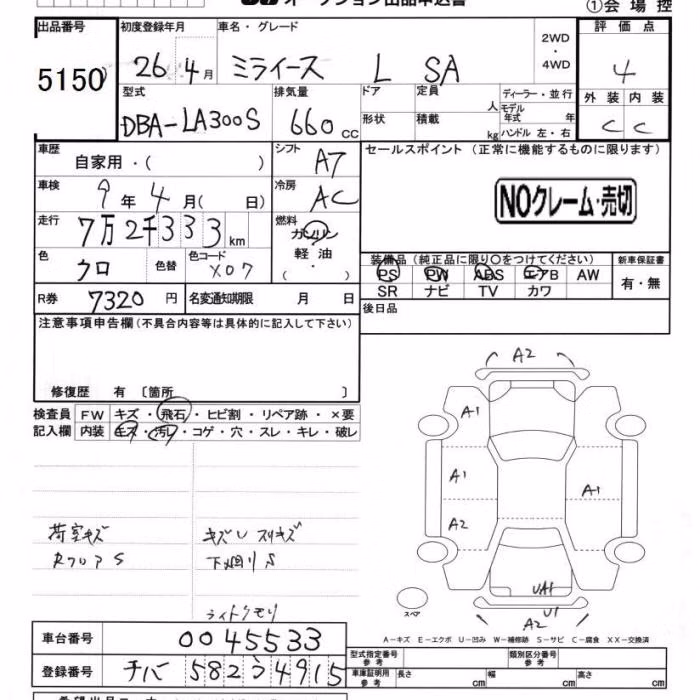 オークション出品申込書 ①会場控
出品番号 初度登録年月 車名・グレード 2WD・4WD 評価点
5150 26年4月 ミライース L SA 4
型式 排気量 ドア 定員 人 ディーラー・並行 外装 内装
DBA-LA300S 660cc 形状 積載 kg モデル年式 年 ハンドル 左・右 C C
車歴 自家用・( ) シフト A7 セールスポイント (正常に機能するものに限ります)
車検 9年4月( 日) 冷房 AC NOクレーム・売切
走行 7万2千333km 燃料 ガソリン
軽油
( ・ )
色 クロ 色替 色コード X07 装備品 (純正品に限り○をつけてください) 新車保証書
PS PW ABS エアB AW 有・無
SR ナビ TV カワ
R券 7320円 名変通知期限 月 日 後日品
注意事項申告欄 (不具合内容等は具体的に記入して下さい)
修復歴 有 〔箇所 〕
検査員 FW キズ・飛石・ヒビ割・リペア跡・×要
記入欄 内装 キズ・汚レ・コゲ・穴・スレ・キレ・破レ
A2
A1
A1 A1
A2
荷室キズ キズU スリキズ
RフロアS 下廻りS
UA1
U1
A2
スペア
ライトクモリ
A-キズ E-エクボ U-凹み W-補修跡 S-サビ C-腐食 XX-交換済
車台番号 0045533
型式指定番号 参考 類別区分番号 参考
登録番号 チバ 582 う 4915
車庫証明用 参考 長さ cm 幅 cm 高さ cm